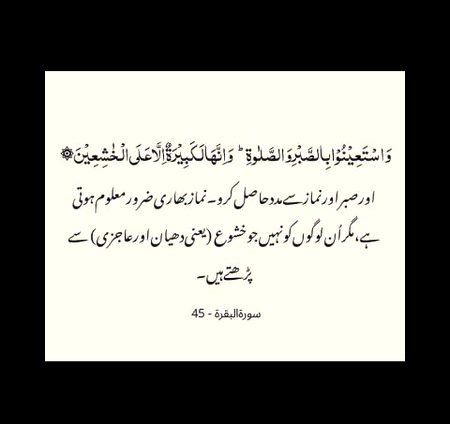 وَاسْتَعِيْنُوْا بِالصَّبْرِ وَالصَّلٰوةِ ؕ وَاِنَّهَا لَكَبِيْرَةٌ اِلَّا عَلَى الْخٰشِعِيْنَ ۞
اور صبر اور نماز سے مدد حاصل کرو۔ نماز بھاری ضرور معلوم ہوتی
ہے، مگر اُن لوگوں کو نہیں جو خشوع (یعنی دھیان اور عاجزی) سے
پڑھتے ہیں۔
سورۃ البقرۃ - 45